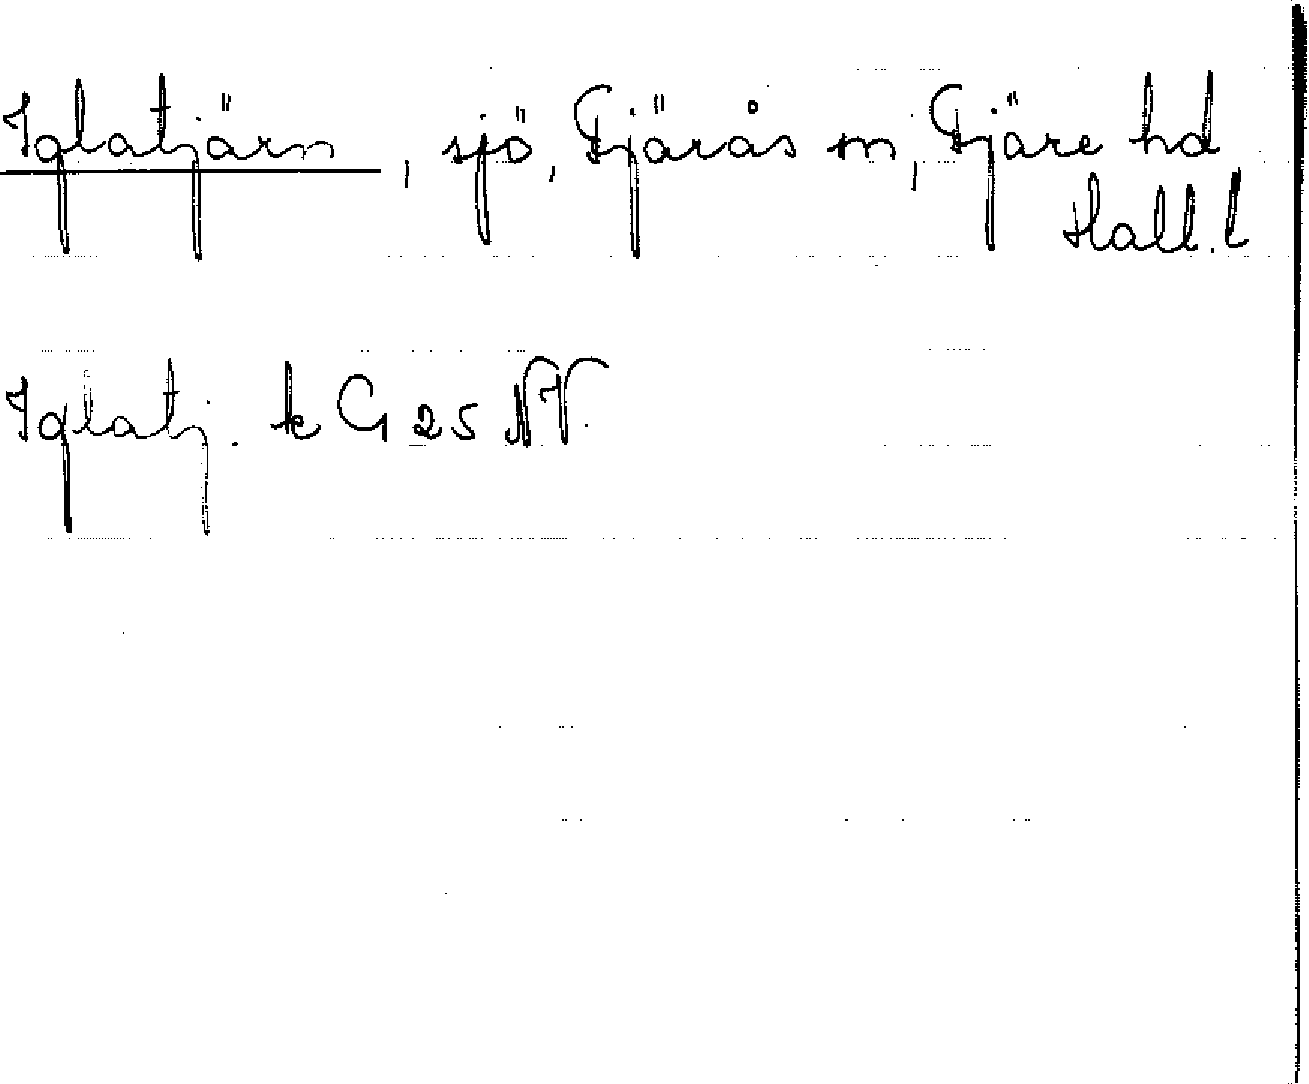 Iglatjärn, sjö, Fjärås sn, Fjäre hd
Hall. l
Iglatj. k G 25 NV.